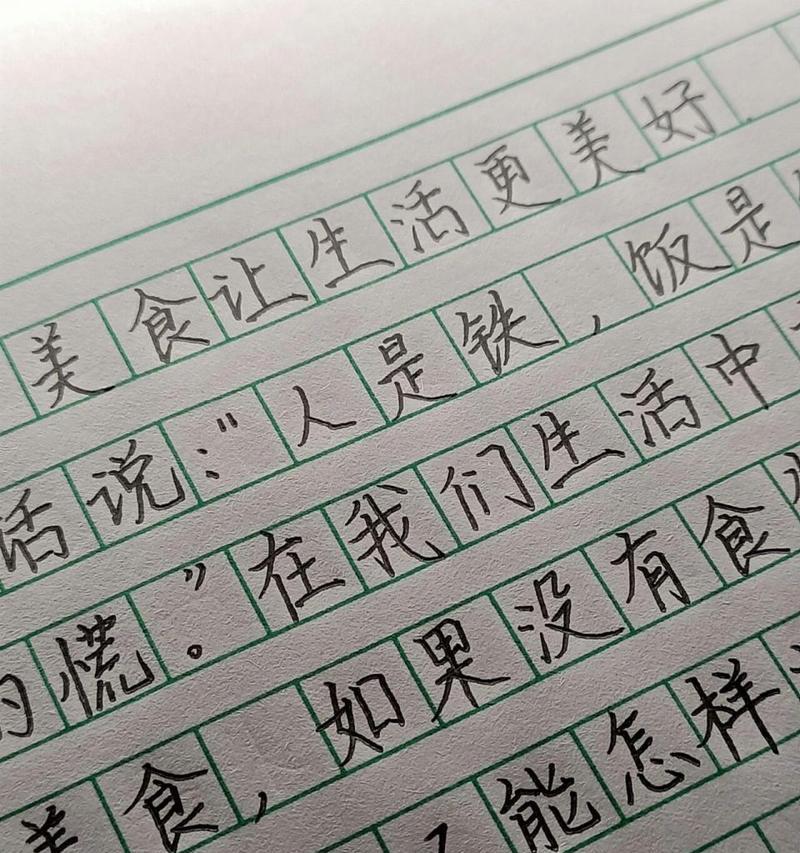 美食让生活更美好
话说：“人是铁，饭是
的慌。”在我们生活中
美食，如果没有食
能怎样